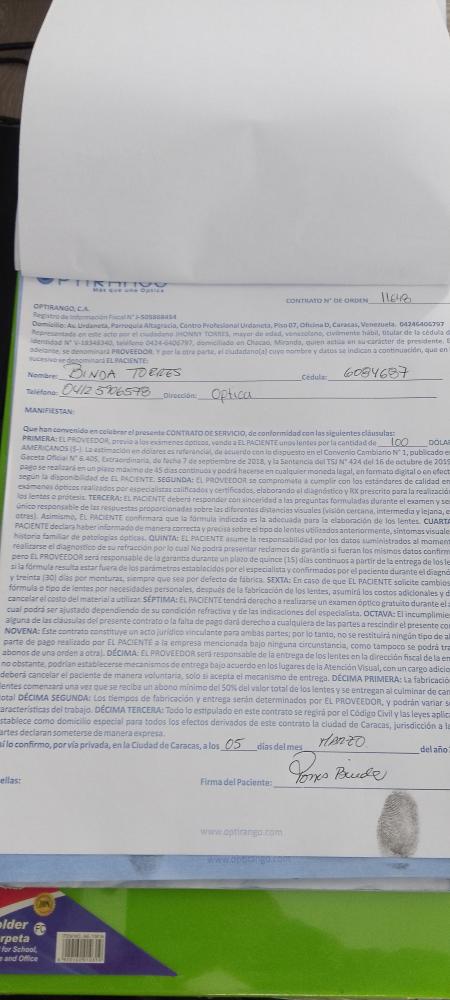 OPTIRANGO
Más que una Óptica
CONTRATO Nº DE ORDEN 11648
OPTIRANGO, C.A.
Registro de Información Fiscal N° J-505868454
Domicilio: Av. Urdaneta, Parroquia Altagracia, Centro Profesional Urdaneta, Piso 07, Oficina D, Caracas, Venezuela. 04246406797
Representada en este acto por el ciudadano JHONNY TORRES, mayor de edad, venezolano, civilmente hábil, titular de la cédula d
Identidad N° V-18348340, teléfono 0424-6406797, domiciliado en Chacao, Miranda, quien actúa en su carácter de presidente. E
adelante, se denominará PROVEEDOR. Y por la otra parte, el ciudadano(a) cuyo nombre y datos se indican a continuación, que en
sucesivo se denominará EL PACIENTE:
Nombre: BINDA TORRES Cédula: 6084687
Teléfono: 0412 5906578 Dirección: Optica
MANIFIESTAN:
Que han convenido en celebrar el presente CONTRATO DE SERVICIO, de conformidad con las siguientes cláusulas:
PRIMERA: EL PROVEEDOR, previo a los exámenes ópticos, vende a EL PACIENTE unos lentes por la cantidad de 100 DÓLAR
AMERICANOS ($-). La estimación en dólares es referencial, de acuerdo con lo dispuesto en el Convenio Cambiario N° 1, publicado e
Gaceta Oficial N° 6.405, Extraordinaria, de fecha 7 de septiembre de 2018, y la Sentencia del TSJ N° 424 del 16 de octubre de 2019
pago se realizará en un plazo máximo de 45 días continuos y podrá hacerse en cualquier moneda legal, en formato digital o en efect
según la disponibilidad de EL PACIENTE. SEGUNDA: EL PROVEEDOR se compromete a cumplir con los estándares de calidad en
exámenes ópticos realizados por especialistas calificados y certificados, elaborando el diagnóstico y RX prescrito para la realizació
los lentes o prótesis. TERCERA: EL PACIENTE deberá responder con sinceridad a las preguntas formuladas durante el examen y se
único responsable de las respuestas proporcionadas sobre las diferentes distancias visuales (visión cercana, intermedia y lejana, e
otras). Asimismo, EL PACIENTE confirmara que la fórmula indicada es la adecuada para la elaboración de los lentes. CUARTA
PACIENTE declara haber informado de manera correcta y precisa sobre el tipo de lentes utilizados anteriormente, síntomas visuale
historia familiar de patologías ópticas. QUINTA: EL PACIENTE asume la responsabilidad por los datos suministrados al momen
realizarse el diagnostico de su refracción por lo cual No podrá presentar reclamos de garantía si fueran los mismos datos confirm
pero EL PROVEEDOR será responsable de la garantía durante un plazo de quince (15) días continuos a partir de la entrega de los le
si la fórmula resulta estar fuera de los parámetros establecidos por el especialista y confirmados por el paciente durante el diagnó
y treinta (30) días por monturas, siempre que sea por defecto de fábrica. SEXTA: En caso de que EL PACIENTE solicite cambios
fórmula o tipo de lentes por necesidades personales, después de la fabricación de los lentes, asumirá los costos adicionales y d
cancelar el costo del material a utilizar. SÉPTIMA: EL PACIENTE tendrá derecho a realizarse un examen óptico gratuito durante el
cual podrá ser ajustado dependiendo de su condición refractiva y de las indicaciones del especialista. OCTAVA: El incumplimien
alguna de las cláusulas del presente contrato o la falta de pago dará derecho a cualquiera de las partes a rescindir el presente co
NOVENA: Este contrato constituye un acto jurídico vinculante para ambas partes; por lo tanto, no se restituirá ningún tipo de a
parte de pago realizado por EL PACIENTE a la empresa mencionada bajo ninguna circunstancia, como tampoco se podrá tra
abonos de una orden a otra). DÉCIMA: EL PROVEEDOR será responsable de la entrega de los lentes en la dirección fiscal de la em
no obstante, podrían establecerse mecanismos de entrega bajo acuerdo en los lugares de la Atención Visual, con un cargo adicio
deberá cancelar el paciente de manera voluntaria, solo si acepta el mecanismo de entrega. DÉCIMA PRIMERA: La fabricació
lentes comenzará una vez que se reciba un abono mínimo del 50% del valor total de los lentes y se entregan al culminar de can
total DÉCIMA SEGUNDA: Los tiempos de fabricación y entrega serán determinados por EL PROVEEDOR, y podrán variar s
características del trabajo. DÉCIMA TERCERA: Todo lo estipulado en este contrato se regirá por el Código Civil y las leyes aplica
establece como domicilio especial para todos los efectos derivados de este contrato la ciudad de Caracas, jurisdicción a la
artes declaran someterse de manera expresa.
sí lo confirmo, por vía privada, en la Ciudad de Caracas, a los 05 días del mes MARZO del año
ellas:
Firma del Paciente: Torres Binda
www.optirango.com
www.optirango.com
older
rpeta
for School,
e and Office
FC